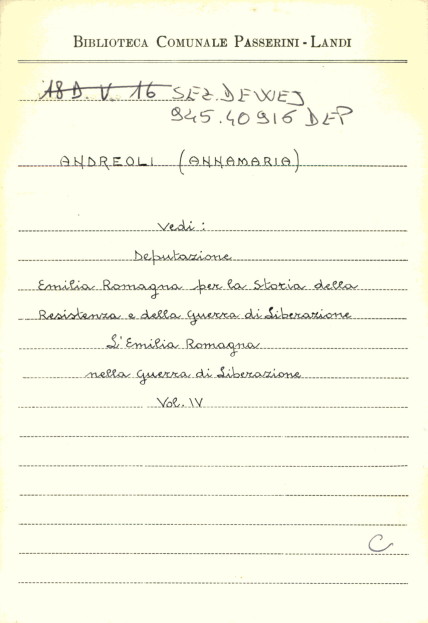 BIBLIOTECA COMUNALE PASSERINI - LANDI
18 D. V. 16 SEZ. DEWEY
945.40916 DEP
ANDREOLI (ANNAMARIA)
Vedi :
Deputazione
Emilia Romagna per la Storia della
Resistenza e della Guerra di Liberazione
L'Emilia Romagna
nella Guerra di Liberazione
Vol. IV
C